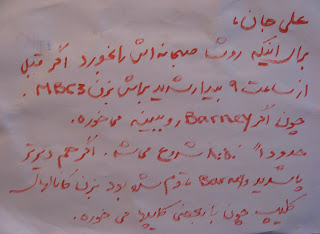 علی جان،
برای اینکه روشا صبحانه‌اش را بخورد اگر قبل
از ساعت ۹ بیدار شدید براش بزن MBC3.
چون اگر Barney رو ببینه می‌خوره.
حدوداً ۸:۵۰ شروع می‌شه. اگر هم دیرتر
پا شدید و Barney تموم شده بود بزن کانال
کلیپ چون با بعضی کلیپها می خوره.